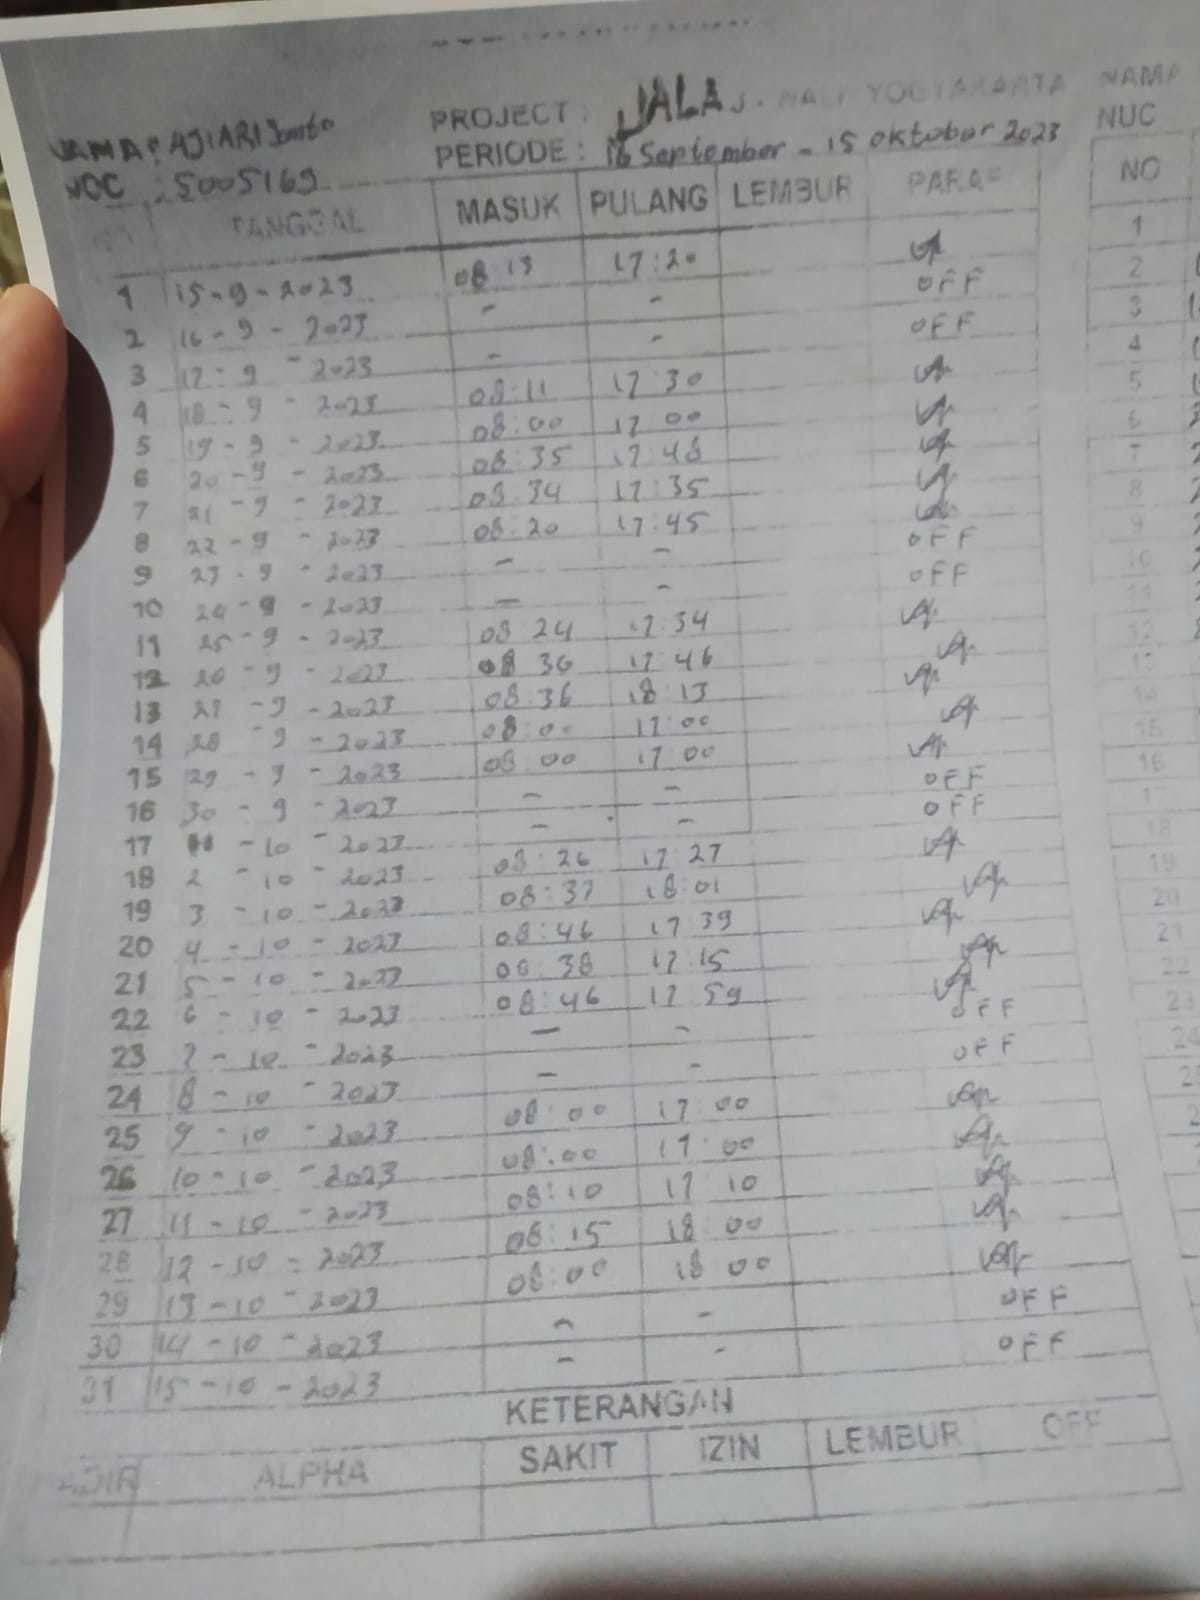 PROJECT : JALA J. MALI YOGYAKARTA NAMA
NAMA : AJI ARI Jomto
PERIODE : 16 September - 15 oktobor 2023 NUC
NOC : 5005169
NO TANGGAL MASUK PULANG LEMBUR PARAF NO
1 15-9-2023 08:13 17:20
2 16-9-2023 - - OFF
3 17-9-2023 - - OFF
4 18-9-2023 08:11 17:30
5 19-9-2023 08:00 17:00
6 20-9-2023 08:35 17:48
7 21-9-2023 08:34 17:35
8 22-9-2023 08:20 17:45
9 23-9-2023 - - OFF
10 24-9-2023 - - OFF
11 25-9-2023 08 24 17:34
12 26-9-2023 08 36 17:46
13 27-9-2023 08:36 18:13
14 28-9-2023 08:00 17:00
15 29-9-2023 08:00 17:00
16 30-9-2023 - - OFF
17 1-10-2023 - - OFF
18 2-10-2023 08:26 17:27
19 3-10-2023 08:37 18:01
20 4-10-2023 08:46 17:39
21 5-10-2023 08:38 17:15
22 6-10-2023 08:46 17 59
23 7-10-2023 - - OFF
24 8-10-2023 - - OFF
25 9-10-2023 08:00 17:00
26 10-10-2023 08:00 17:00
27 11-10-2023 08:10 17 10
28 12-10-2023 08:15 18:00
29 13-10-2023 08:00 18 00
30 14-10-2023 - - OFF
31 15-10-2023 - - OFF
KETERANGAN
ADIR ALPHA SAKIT IZIN LEMBUR OFF
1
2
3
4
5
6
7
8
9
10
11
12
13
14
15
16
17
18
19
20
21
22
23
24